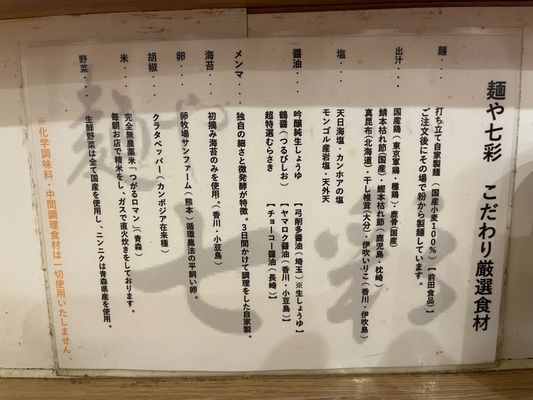 麺や七彩 こだわり厳選食材
麺・・・ 打ち立て自家製麺(国産小麦100%)【前田食品】
ご注文後にその場で粉から製麺しています。
出汁・・・ 国産鶏(東京軍鶏、種鶏)・鹿骨(国産)
鯖本枯れ節(国産)・鰹本枯れ節(鹿児島・枕崎)
真昆布(北海道)・干し椎茸(大分)・伊吹いりこ(香川・伊吹島)
塩・・・ 天日海塩・カンホアの塩
モンゴル産岩塩・天外天
醤油・・・ 吟醸純生しょうゆ 【弓削多醤油(埼玉)※生しょうゆ】
鶴醤(つるびしお) 【ヤマロク醤油(香川・小豆島)】
超特選むらさき 【チョーコー醤油(長崎)】
メンマ・・・ 独自の細さと微発酵が特徴。3日間かけて調理をした自家製。
海苔・・・ 初摘み海苔のみを使用。(香川・小豆島)
卵・・・ 卵牧場サンファーム(熊本)循環農法の平飼い卵。
胡椒・・・ クラタペッパー(カンボジア在来種)
米・・・ 完全無農薬米「つがるロマン」(青森)
毎朝お店で精米をし、ガスで直火炊きをしております。
野菜・・・ 生鮮野菜は全て国産を使用し、ニンニクは青森県産を使用。
※化学調味料・中間調理食材は一切使用いたしません。
麺や
七彩